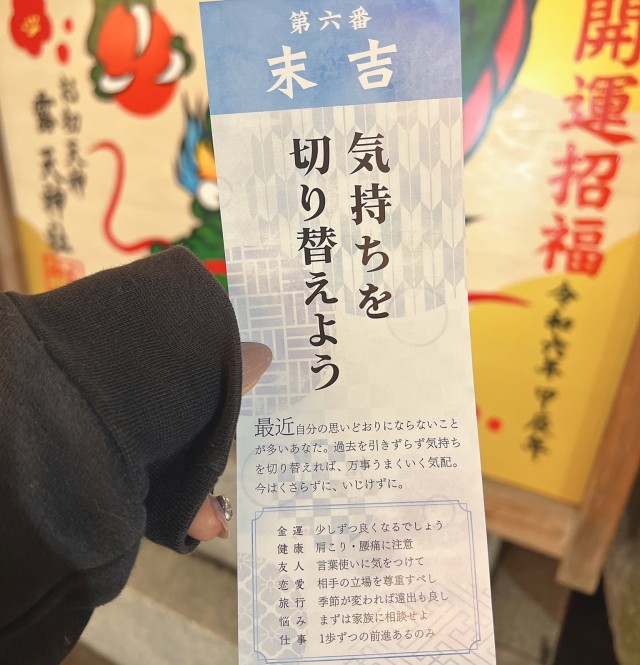 第六番
末吉
気持ちを
切り替えよう
最近自分の思いどおりにならないこと
が多いあなた。過去を引きずらず気持ち
を切り替えれば、万事うまくいく気配。
今はくさらずに、いじけずに。
金運 少しずつ良くなるでしょう
健康 肩こり・腰痛に注意
友人 言葉使いに気をつけて
恋愛 相手の立場を尊重すべし
旅行 季節が変われば遠出も良し
悩み まずは家族に相談せよ
仕事 1歩ずつの前進あるのみ
開運招福
令和六年 甲辰年
お初天神
露天神社